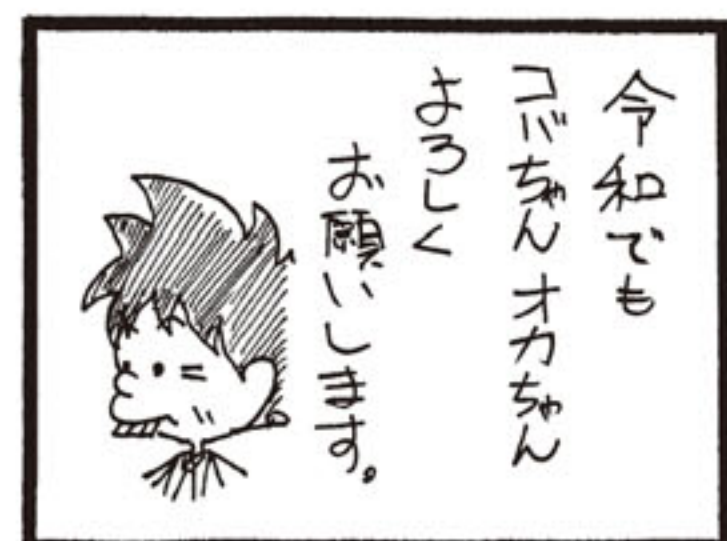 令和でも
コバちゃん オカちゃん
よろしく
お願いします。